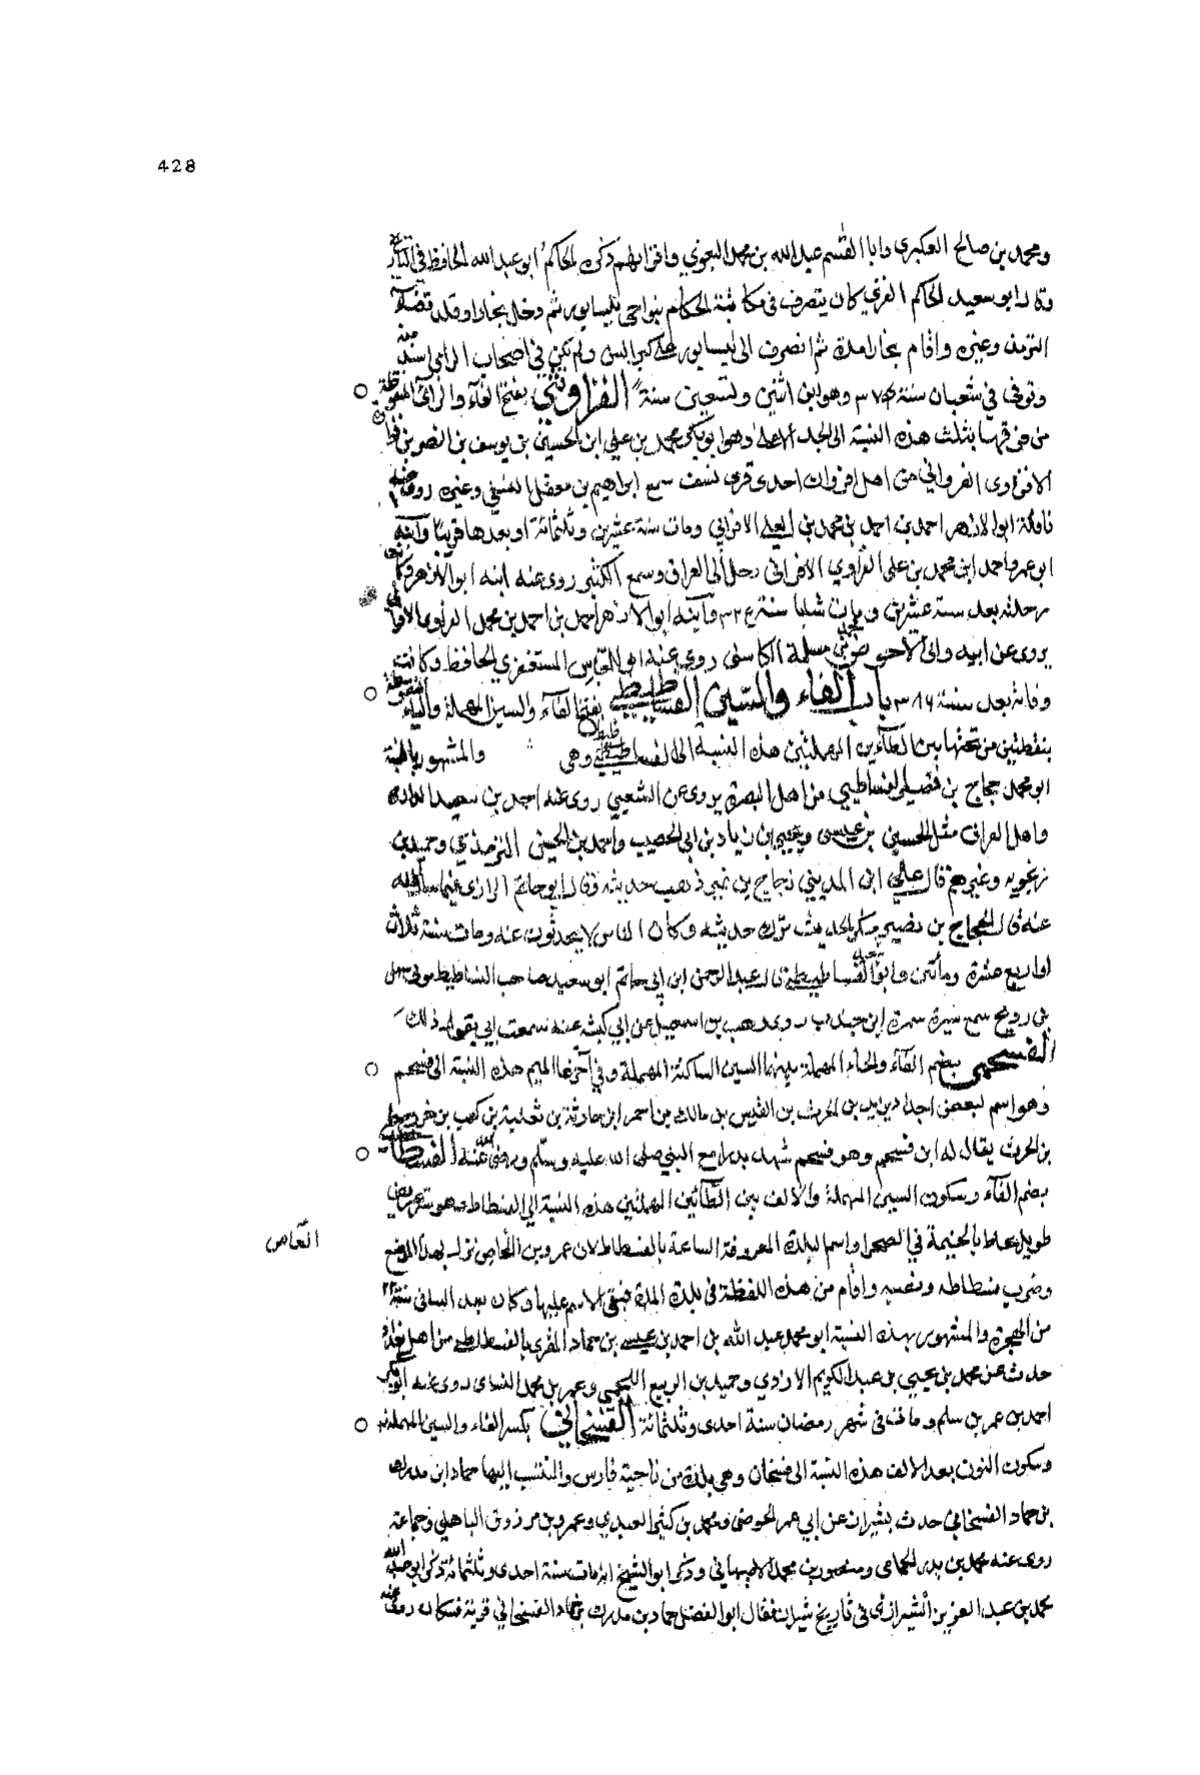 428
ومحمد بن صالح العكبرى وابا القسم عبد الله بن محمد البغوي واقرانهم ذكره الحاكم ابو عبد الله الحافظ فى التاريخ
وقال ابو سعيد الحاكم الفزي كان يتصرف فى مكاتبة الحكام بنواحى نيسابور ثم دخل بخارا وقلد قضاء
الترمذ وغيره واقام بخارا مدة ثم انصرف الى نيسابور على كبر السن ولم يكن في اصحاب الراى اسند منه
وتوفى فى شعبان سنة ٣٧ وهو ابن اثنين وتسعين سنة الفراوي بفتح الفاء والراء المنقوطة
من فوقها بثلث هذه النسبة الى الجد الاعلى وهو ابو بكر محمد بن علي ابن الحسين بن يوسف بن النصر بن
الافراوى الفروانى من اهل افروان احدى قرى نسف سمع ابراهيم بن معقل النسفى وغيره روى عنه
نافلته ابو الازهر احمد بن احمد بن محمد بن العلي الافراني ومات سنة عشرين وثلثمائة او بعدها قريبا وابنه
ابو عمرو احمد ابن محمد بن على الفراوي الافرانى رحل الى العراق وسمع الكثير روى عنه ابنه ابو الازهر وكانت
رحلته بعد سنة عشرين ومات شابا سنة ٣٢٤ وابنه ابو الازهر احمد بن احمد بن محمد الفراوى الافرانى
يروى عن ابيه وابى الاحوص محمد بن مسلمة الكاسنى روى عنه ابو العباس المستغفرى الحافظ وكانت
وفاته بعد سنة ٣٨٦ باب الفاء والسين الفساطيطي بفتح الفاء والسين المهملة والياء المنقوطة
بنقطتين من تحتها بين الطائين المهملتين هذه النسبة الى الفساطيط وهى والمشهور بالنسبة
ابو محمد حجاج بن نصير الفساطيطي من اهل البصرة يروى عن الشعبي روى عنه احمد بن سعيد الدارمى
واهل العراق مثل الحسين بن عيسى ويحيى بن زياد بن ابى الخصيب واحمد بن الحسن الترمذي وحميد بن
زنجويه وغيرهم قال علي ابن المديني حجاج بن نصير ذهب حديثه وقال ابو حاتم الرازى فيما سأله ابنه
عنه قال الحجاج بن نصير منكر الحديث ترك حديثه وكان الناس لا يحدثون عنه ومات سنة ثلاث
او اربع عشرة ومأتين وابو سعيد الفساطيطى قال عبد الرحمن ابن ابي حاتم ابو سعيد صاحب الفساطيط مولى
بنى رويح سمع سيرة سمرة ابن جندب روى وهب بن اسمعيل عن ابي كبشة عنه سمعت ابي يقول ذلك
الفسحمى بضم الفاء والحاء المهملة بينهما السين الساكنة المهملة وفى آخرها الميم هذه النسبة الى فسحم
وهو اسم لبعض اجداد يزيد بن الحرث بن القيس بن مالك بن احمر ابن حارثة بن ثعلبة بن كعب بن خزرج
بن الحرث يقال له ابن فسحم وهو فسحم شهد بدرا مع النبي صلى الله عليه وسلم ورضى الله عنه الفسطاطى
بضم الفاء وسكون السين المهملة والالف بين الطائين المهملتين هذه النسبة الى الفسطاط وهو ستر عريض
طويل يحاط بالخيمة في الصحرا واسم لبلدة المعروفة الساعة بالفسطاط لان عمرو بن العاص نزل بهذا الموضع
العاص
وضرب فسطاطه ونفسه واقام من هذه اللفظة فى بلدة المدة فبقى الاسم عليها وكان بعد السانى سنة ٢٢
من الهجرة والمشهور بهذه النسبة ابو محمد عبد الله بن احمد بن عيسى بن حماد المقرى بالفسطاطى من اهل بغداد
حدث عن محمد بن يحيى بن عبد الكريم الازدي وحميد بن الربيع اللخمى وعمر بن محمد النساى روى عنه ابو بكر
احمد بن عمر بن سلم ومات فى شهر رمضان سنة احدى وثلثمائة الفسنجاني بكسر الفاء والسين المهملة
وسكون النون بعد الالف هذه النسبة الى فسنجان وهى بلدة من ناحية فارس والمنتسب اليها حماد ابن مدرك
بن حماد الفسنجانى حدث بشيراز عن ابي عمر الحوضى ومحمد بن كثير العبدي وعمرو بن مرزوق الباهلى وجماعة
روى عنه محمد بن بدر الحمامى ومنصور بن محمد الاصبهاني وذكر ابو الشيخ انه مات سنة احدى وثلثمائة ذكر ابو عبد الله
محمد بن عبد العزيز الشيرازى فى تاريخ شيراز فقال ابو الفضل حماد بن مدرك بن حماد الفسنجانى قرية فسكان روى عنه